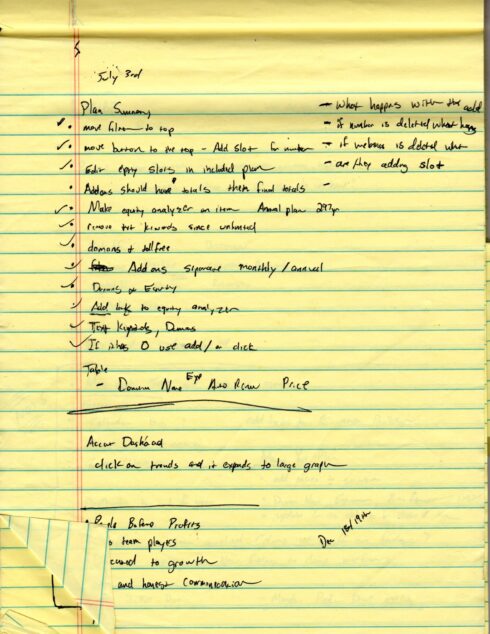 July 3rd
Plan Summary
move filter to top
move button to the top - Add slot for number
Edit empty slots in included plan
Addons should have totals then final totals
Make equity analyzer an item Annual plan 297/yr
remove txt keywords since unlimited
domains & tollfree
Addons separate monthly/annual
Domains & Equity
Add link to equity analyzer
Text Keywords, Domains
If it has 0 use add/ click
Table
- Domain Name Exp Auto Renew Price
- What happens with the add
- if number is deleted what happens
- if is deleted what
- are they adding slot
-
Dashboard
click on trends and it expands to large graph
Before Profits
team players
to growth
and honest communication
Dec 18/19th